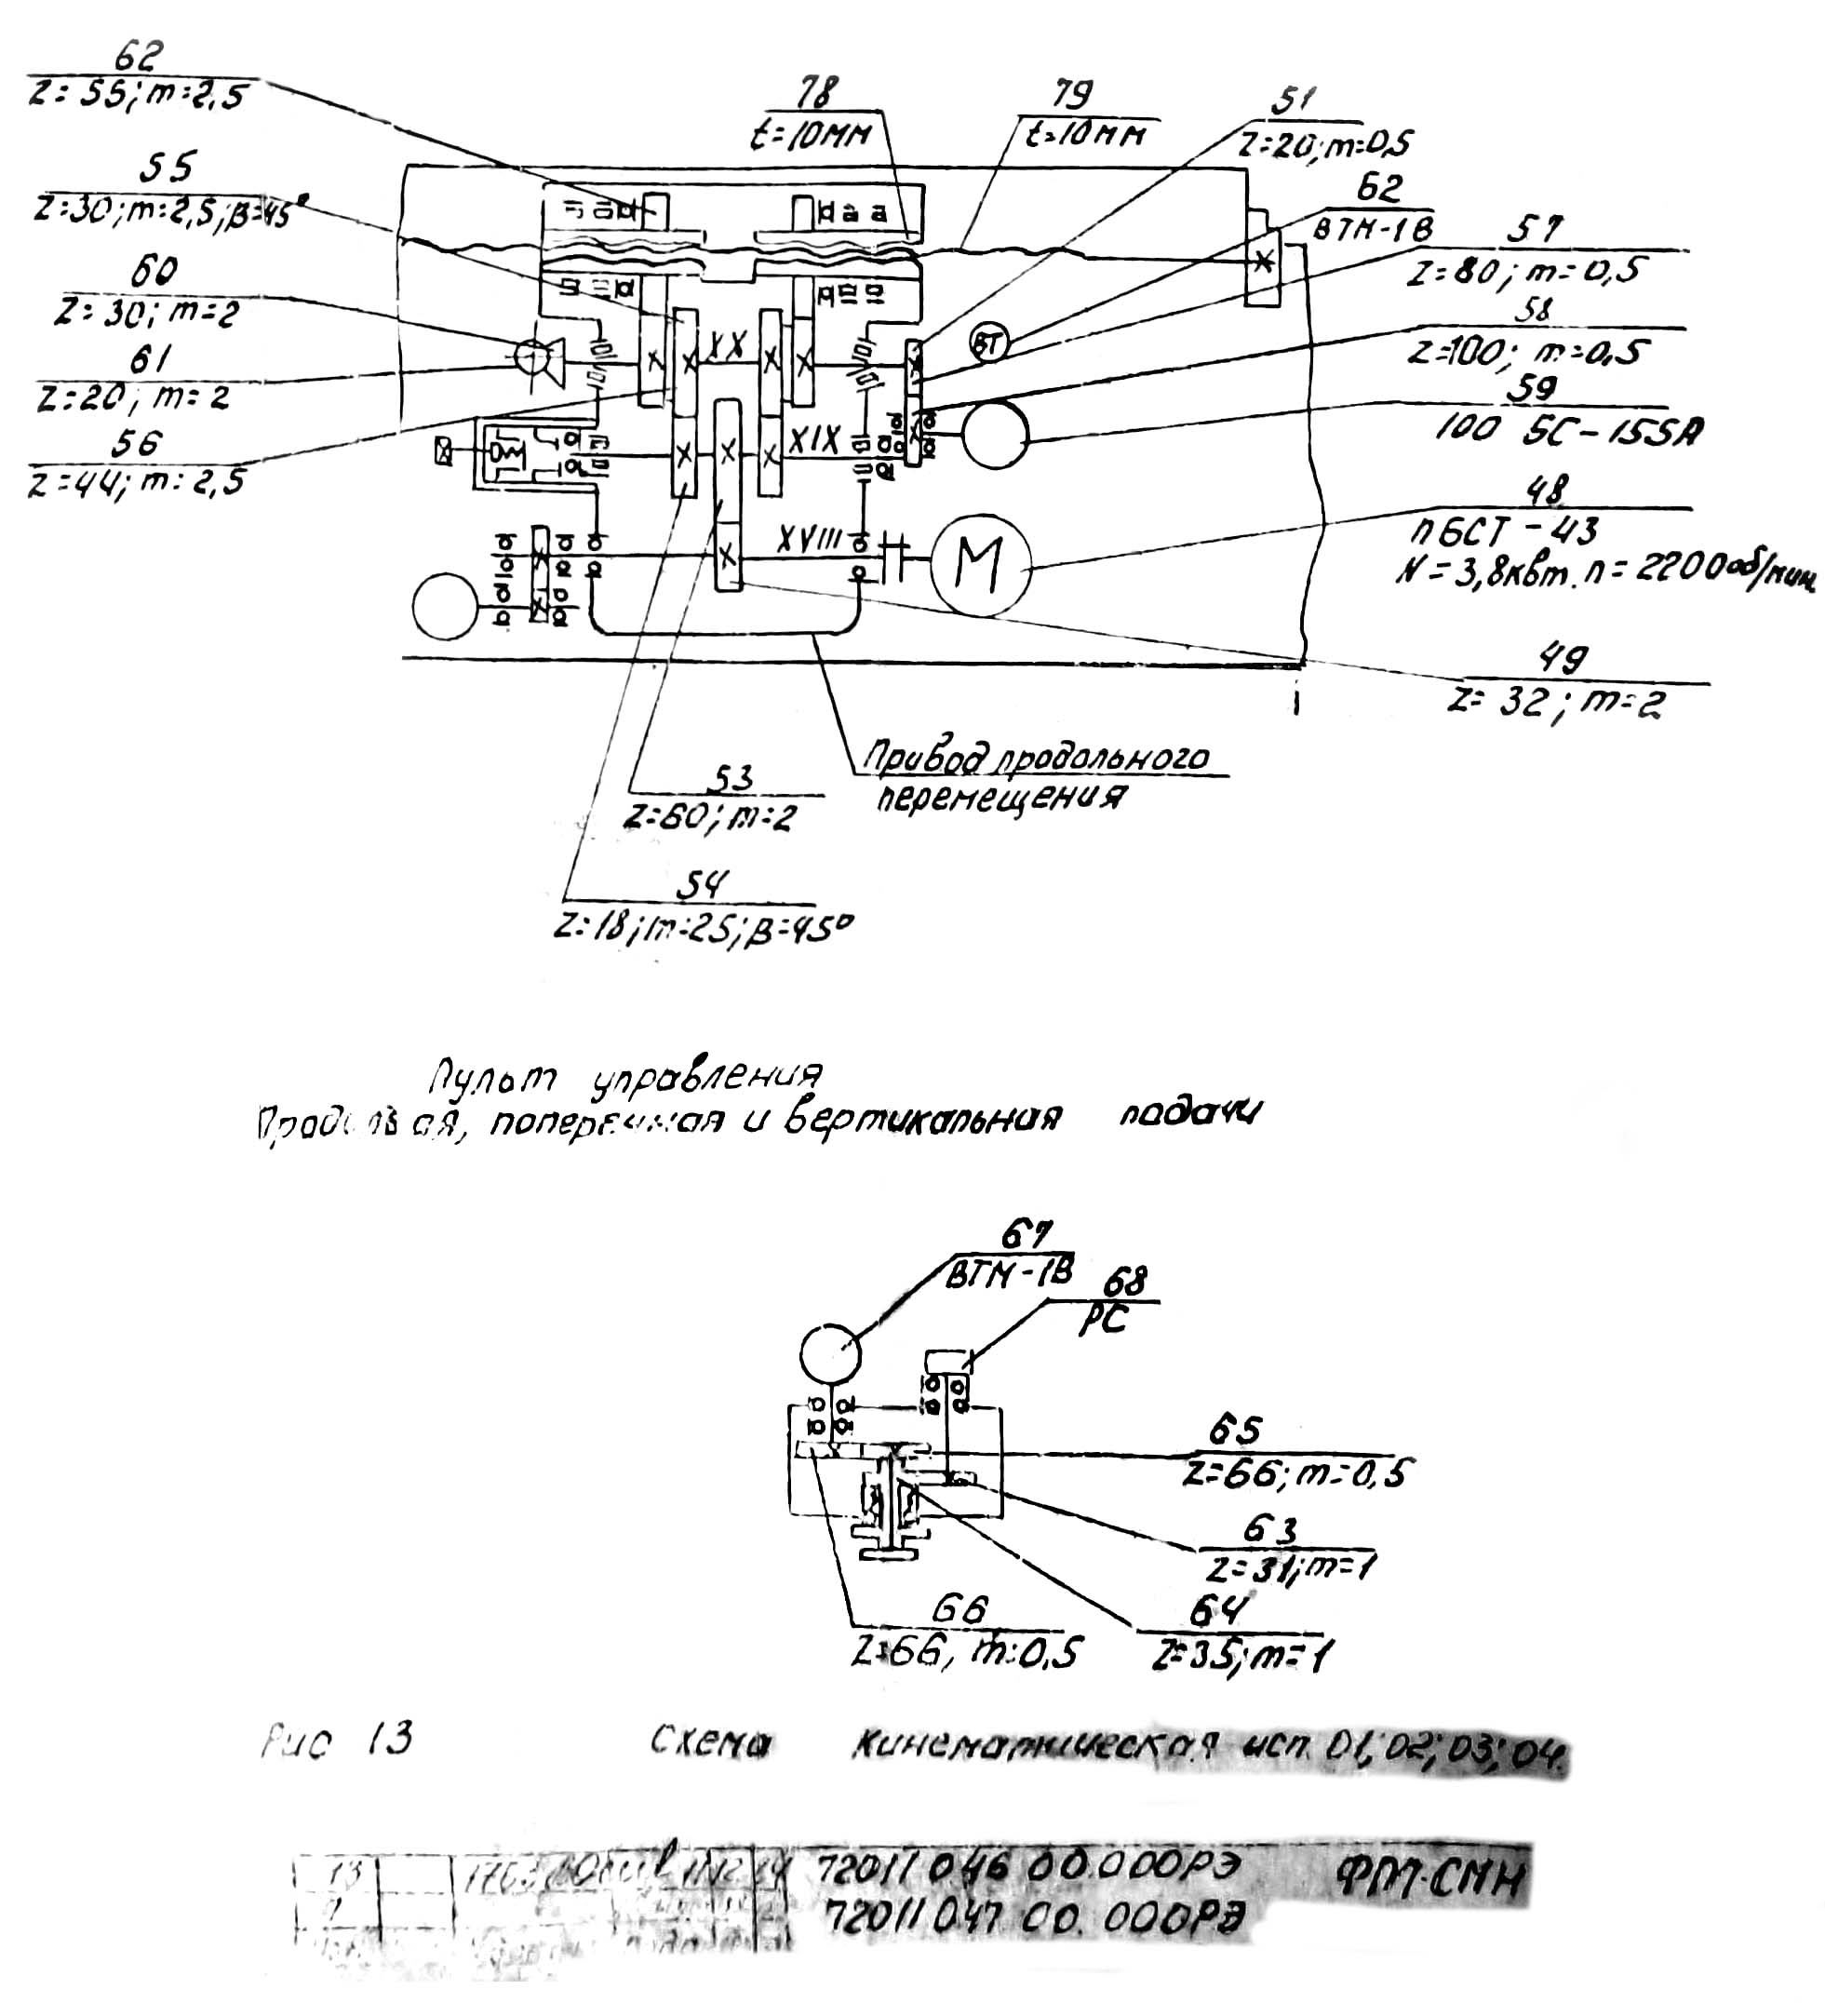 62
z=55; m=2,5
78
t=10мм
79
t=10мм
51
z=20; m=0,5
55
z=30; m=2,5; β=45°
62
ВТМ-1В
57
z=80; m=0,5
60
z=30; m=2
58
z=100; m=0,5
61
z=20; m=2
59
100 5С-155А
56
z=44; m=2,5
XX
ВТ
XIX
48
ПБСТ-43
N=3,8квт. n=2200об/мин
XVIII
М
49
z=32; m=2
Привод продольного
перемещения
53
z=60; m=2
54
z=18; m=25; β=45°
Пульт управления
Продольная, поперечная и вертикальная подачи
67
ВТМ-1В
68
РС
65
z=66; m=0,5
63
z=31; m=1
66
z=66, m=0,5
64
z=35; m=1
Рис 13 Схема кинематическая исп. 01; 02; 03; 04.
13
72011 046 00.000РЭ ФМ-СМН
72011 047 00.000РЭ